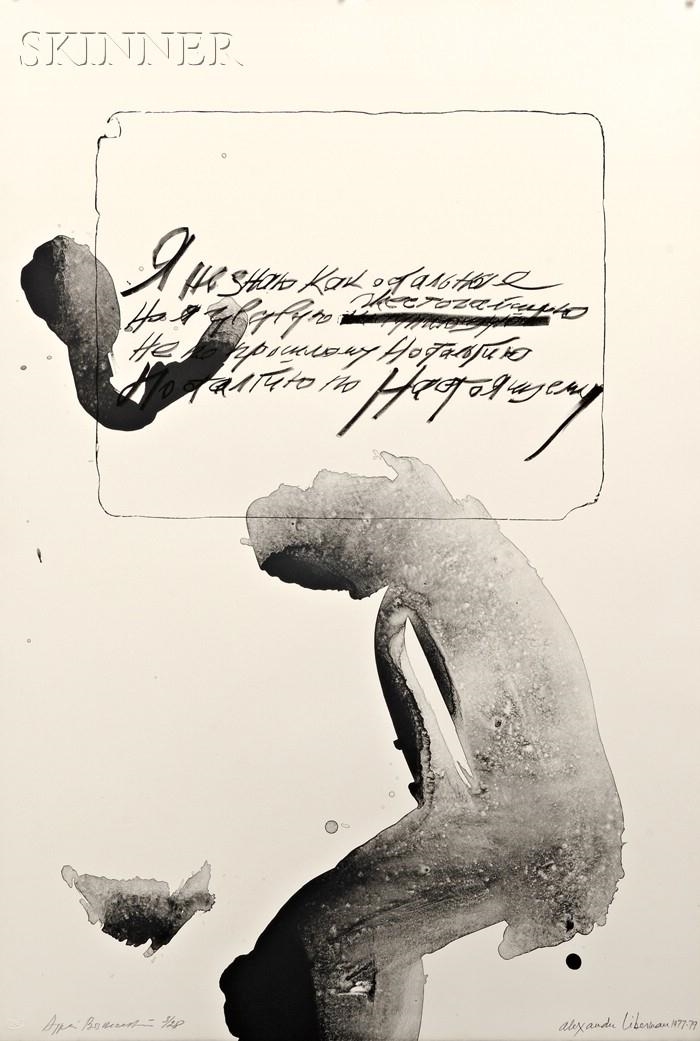 SKINNER
Я не знаю как остальные
Но я чувствую жесточайшую
Не по прошлому Ностальгию
Ностальгию по Настоящему
3/28
alexander liberman 1977-79